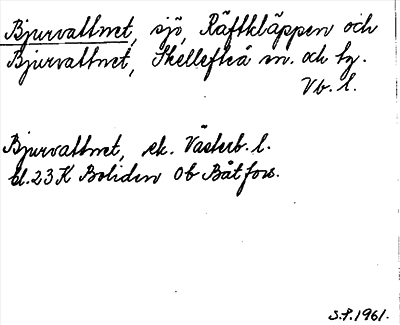 Bjurvattnet, sjö, Räftkläppen och
Bjurvattnet, Skellefteå sn. och tg.
Vb. l.
Bjurvattnet, ek. Västerb. l.
bl. 23 K Boliden Ob Båtfors.
S.P. 1961.